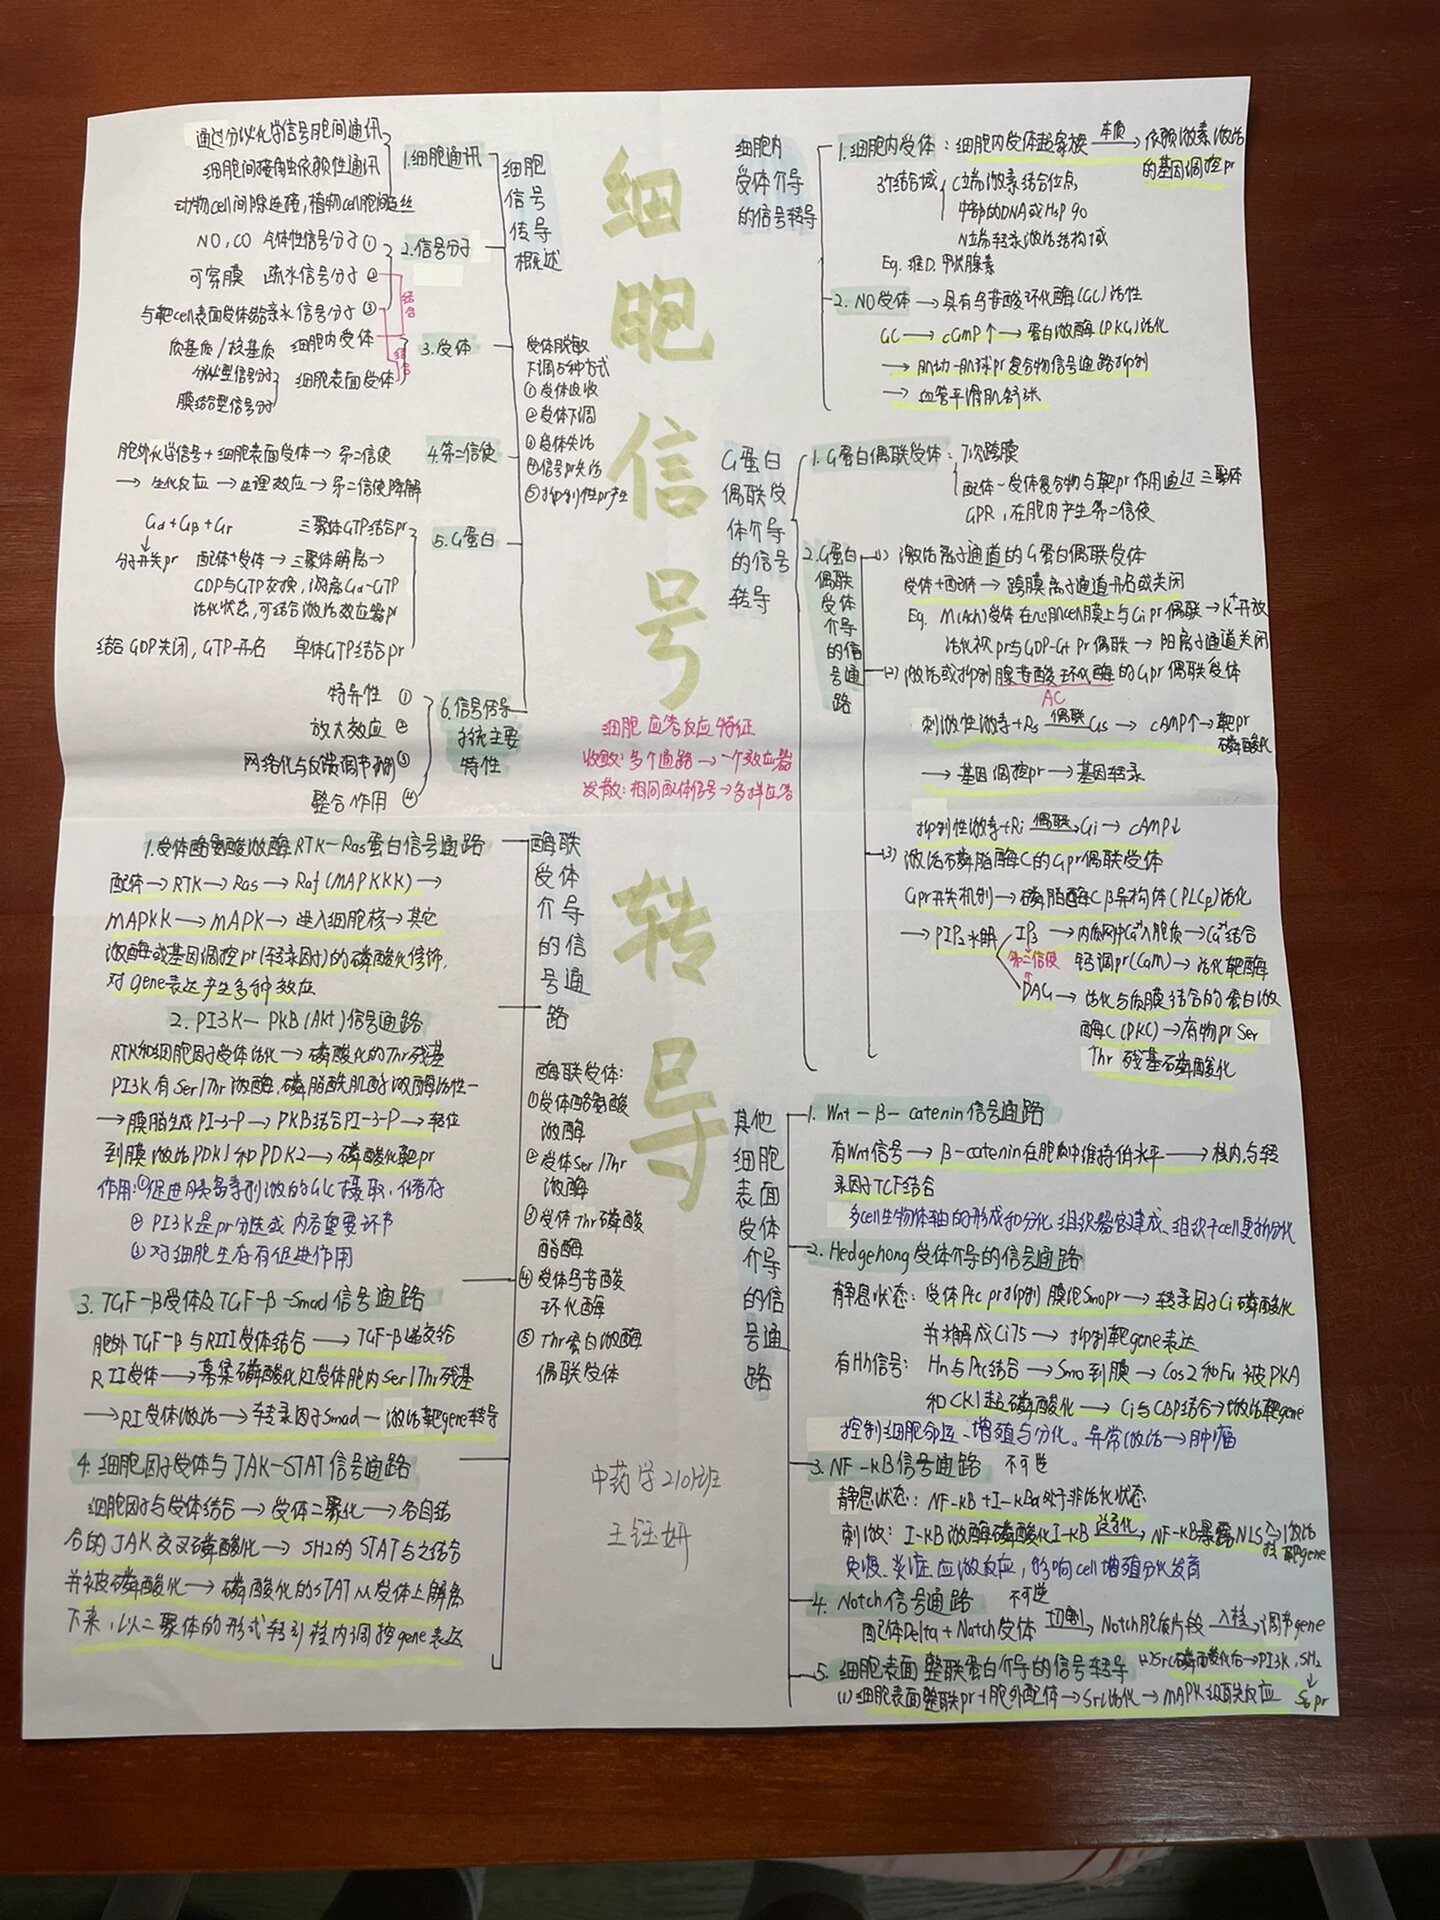 细胞信号转导
细胞信号传导概述
1.细胞通讯
通过分泌化学信号胞间通讯
细胞间接触依赖性通讯
动物cell间隙连接,植物cell胞间连丝
2.信号分子
NO,CO 气体性信号分子①
可穿膜 疏水信号分子②
与靶cell表面受体结合亲水信号分子③
结合
3.受体
质基质/核基质 细胞内受体
分泌型信号分子
细胞表面受体
膜结合型信号分子
结合
受体脱敏
下调5种方式
①受体收
②受体下调
③受体失活
④信号pr失活
⑤抑制性pr产生
4.第二信使
胞外化学信号+细胞表面受体→第二信使
→生化反应→生理效应→第二信使降解
5.G蛋白
Gα+Gβ+Gr 三聚体GTP结合pr
分子开关pr 配体+受体→三聚体解离→
GDP与GTP交换,游离Gα-GTP
活化状态,可结合激活效应器pr
结合GDP关闭,GTP开启 单体GTP结合pr
6.信号传导系统主要特性
特异性①
放大效应②
网络化与反馈调节机制③
整合作用④
细胞应答反应特征
收敛:多个通路→一个效应器
发散:相同配体信号→多样应答
酶联受体介导的信号通路
1.受体酪氨酸激酶RTK-Ras蛋白信号通路
配体→RTK→Ras→Raf(MAPKKK)→
MAPKK→MAPK→进入细胞核→其它
激酶或基因调控pr(转录因子)的磷酸化修饰,
对gene表达产生多种效应
2.PI3K-PKB(Akt)信号通路
RTK和细胞因子受体活化→磷酸化的Thr残基
PI3K有Ser/Thr激酶,磷脂酰肌醇激酶活性-
→膜脂生成PI-3-P→PKB结合PI-3-P→转位
到膜激活PDK1和PDK2→磷酸化靶pr
作用:①促进胰岛素刺激的GLC摄取,储存
②PI3K是pr分选或内吞重要环节
③对细胞生存有促进作用
3.TGF-β受体及TGF-β-Smad信号通路
胞外TGF-β与RIII受体结合→TGF-β递交给
RII受体→募集磷酸化RI受体胞内Ser/Thr残基
→RI受体激活→转录因子Smad-激活靶gene转导
4.细胞因子受体与JAK-STAT信号通路
细胞因子与受体结合→受体二聚化→各自结
合的JAK交叉磷酸化→SH2的STAT与之结合
并被磷酸化→磷酸化的STAT从受体上解离
下来,以二聚体的形式转到核内调控gene表达
酶联受体:
①受体酪氨酸激酶
②受体Ser/Thr激酶
③受体Thr磷酸酯酶
④受体鸟苷酸环化酶
⑤Thr蛋白激酶偶联受体
中药学2101班
王钰妍
细胞内受体介导的信号转导
1.细胞内受体:细胞内受体超家族 本质→依赖激素激活的基因调控pr
3个结合域
C立端激素结合位点,
中部的DNA或Hsp90
N立端转录激活结构域
Eg.维D.甲状腺素
2.NO受体→具有鸟苷酸环化酶(GC)活性
GC→cGMP↑→蛋白激酶(PKG)活化
→肌动-肌球pr复合物信号通路抑制
→血管平滑肌舒张
G蛋白偶联受体介导的信号转导
1.G蛋白偶联受体:7次跨膜
配体-受体复合物与靶pr作用通过三聚体
GPR,在胞内产生第二信使
2.G蛋白偶联受体介导的信号通路
(1)激活离子通道的G蛋白偶联受体
受体+配体→跨膜离子通道开启或关闭
Eg.M(Ach)受体在心肌cell膜上与Gi pr偶联→K⁺开放
活化视pr与GDP-Gt pr偶联→阳离子通道关闭
(2)激活或抑制腺苷酸环化酶的Gpr偶联受体
AC
刺激性激素+Rs 偶联 Gs→cAMP↑→靶pr磷酸化
→基因调控pr→基因转录
抑制性激素+Ri 偶联→Gi→cAMP↓
(3)激活磷脂酶C的Gpr偶联受体
Gpr开关机制→磷脂酶Cβ异构体(PLCβ)活化
→PIP₂水解
IP₃→内质网中Ca²⁺入胞质→Ca²⁺结合
第二信使 钙调pr(CaM)→活化靶酶
DAG→活化与质膜结合的蛋白激
酶C(PKC)→有物pr Ser
Thr残基磷酸化
其他细胞表面受体介导的信号通路
1.Wnt-β-catenin信号通路
有Wnt信号→β-catenin在胞质中维持低水平→核内,与转
录因子TCF结合
多cell生物体轴的形成和分化,组织器官建成、组织干cell更新分化
2.Hedgehong受体介导的信号通路
静息状态:受体Ptc pr抑制膜泡Smo pr→转录因子Ci磷酸化
并水解成Ci75→抑制靶gene表达
有Hh信号:Hh与Ptc结合→Smo到膜→Cos2和Fu被PKA
和CK1超磷酸化→Ci与CBP结合→激活靶gene
控制细胞命运、增殖与分化。异常激活→肿瘤
3.NF-κB信号通路 不可逆
静息状态:NF-κB+I-κBα处于非活化状态
刺激:I-κB激酶磷酸化I-κB 泛素化→NF-κB暴露NLS 入核→激活靶gene
免疫、炎症应激反应,影响cell增殖分化发育
4.Notch信号通路 不可逆
配体Delta+Natch受体 切割→Notch胞质片段 入核→调节gene
5.细胞表面整联蛋白介导的信号转导
(1)细胞表面整联pr+胞外配体→Src活化→MAPK级联反应
(2)Src磷酸化后→PI3K,SH₂
↓
S6 pr